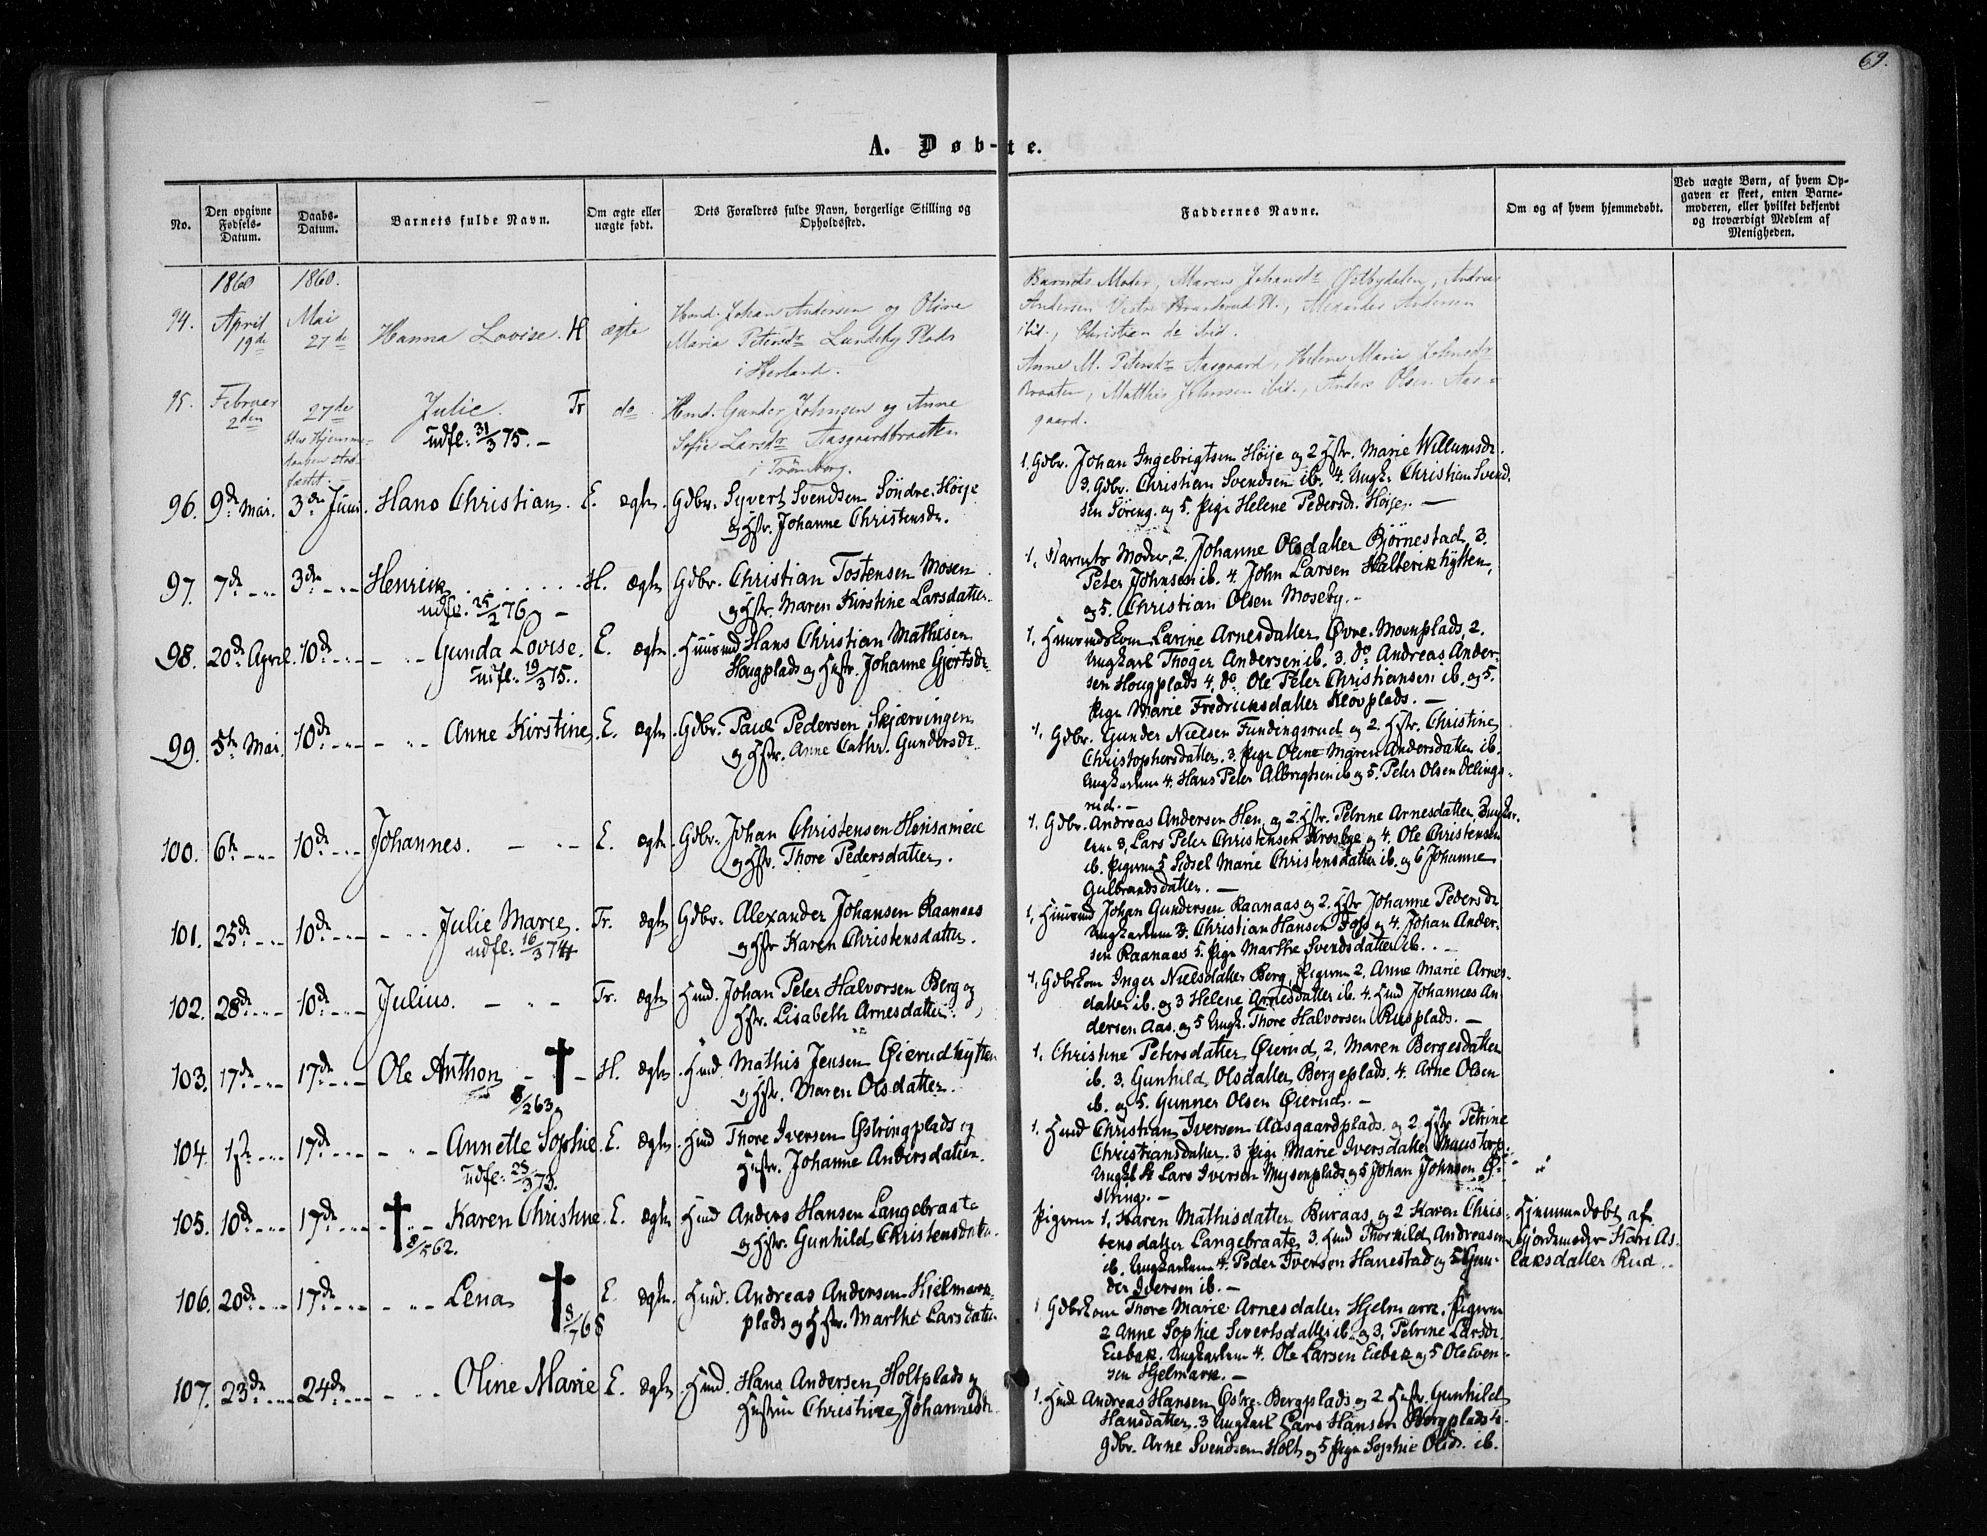 69.
A. Døb-te.
No.
Den opgivne Fødsels-Datum.
Daabs-Datum.
Barnets fulde Navn.
Om ægte eller uægte født.
Dets Forældres fulde Navn, borgerlige Stilling og Opholdssted.
Faddernes Navne.
Om og af hvem hjemmedøbt.
Ved uægte Børn, af hvem Opgaven er skeet, enten Barnemoderen, eller hvilket bekjendt og troværdigt Medlem af Menigheden.
1860 1860.
94. April 19de Mai 27de Hanna Lovise. H ægte
Hmd. Johan Andersen og Oline
Maria Petersdr Lundeby Plads
i Herland.
Barnets Moder, Maren Johansdr Østbydalen, Andreas
Andersen Vestre Pl., Alexander Andersen
ibid., Christian do ibid.
95. Februar 2den 27de Julie. Tr do
udfl. 31/3 75. –
Hmd. Gunder Johnsen og Anne
Sofie Larsdr Aasgaardbraatten
i Trømborg.
Anne M. Petersdr Aasgaard, Helene Maria Johnsdr
Braaten, Matthis Johnsen ibid., Anders Olsen Aas-
gaard.
96. 9de Mai. 3de Juni. Hans Christian. E. ægte.
Gdbr. Syvert Svendsen Søndre Høije
og Hstr. Johanne Christensdr.
1. Gdbr. Johan Ingebrigtsen Høije og 2 Hstr. Marie Willumsdr.
3. Gdbr. Christian Svendsen ib. 4. Ungk. Christian Svend-
sen Søreng. og 5. Pige Helene Pedersdr. Høije. –
97. 7de 3de Henrik H. ægte
udfl. 25/2 76 –
Gdbr. Christian Tostensen Mosen
og Hstr. Maren Kirstine Larsdatter.
1. Barnets Moder, 2. Johanne Olsdatter Bjørnestad, 3.
Peter Johnsen ib. 4. John Larsen
og 5. Christian Olsen Moseby. –
98. 20de April. 10de Gunda Lovise. E. ægte.
udfl. 19/3 75.
Huusmd Hans Christian Mathisen
Hougplads og Hustr. Johanne Gjertsdr.
1. Huusmdskone Larine Arnesdatter Øvre Moenplads, 2.
Ungkarl Thøger Andersen ib. 3. do Andreas Ander-
sen Hougplads 4. do Ole Peter Christiansen ib. og 5.
Pige Marie Fredriksdatter Kløvplads. –
99. 5te Mai. 10de Anne Kirstine. E. ægte.
Gdbr. Paul Pedersen Skjærvingen
og Hstr. Anne Cathr. Gundersdr.
1. Gdbr. Gunder Nielsen Fundingsrud og 2. Hstr. Christine
Christophersdatter. 3. Pige Oline Maren Andersdatter ib.
Ungkarlene 4. Hans Peter Albrigtsen ib og 5. Peter Olsen Delings-
rud. –
100. 6te 10de Johannes. E. ægte
Gdbr. Johan Christensen Hensameie
og Hstr. Thore Pedersdatter.
1. Gdbr. Andreas Andersen Hen, og 2. Hstr. Petrine Arnesdatter Ungkar-
lene 3. Lars Peter Christensen og 4. Ole Christensen
ib. Pigerne 5 Sidsel Marie Christensdatter ib. og 6 Johanne
Gulbrandsdatter. –
101. 25de 10de Julie Marie. Tr. ægte
udfl. 16/3 74
Gdbr. Alexander Johansen Raanaas
og Hstr Karen Christensdatter.
1. Huusmd Johan Gundersen Raanaas og 2. Hstr Johanne Pedersdr
Ungkarlene 3. Christian Hansen Foss og 4. Johan Ander-
sen Raanaas 5. Pige Marthe Svendsdatter ib. –
102. 28de 10de Julius. Tr. ægte
Hmd. Johan Peter Halvorsen Berg og
Hstr. Lisabeth Arnesdatter.
1. Gdbrkone Inger Nielsdatter Berg, Pigerne 2. Anne Marie Arnes-
datter ib. og 3 Helene Arnesdatter ib. 4. Hmd Johannes An-
dersen Aas. og 5 Ungk. Thore Halvorsen Rusplads. –
103. 17de 17de Ole Anthon – H. ægte
8/2 63
Hmd. Mathis Jensen Øierudhytten
og Hstr. Maren Olsdatter.
1. Christine Petersdatter Øierud, 2. Maren Bergesdatter
ib. 3. Gunhild Olsdatter Bergeplads. 4. Arne Olsen
ib. og 5. Gunner Olsen Øierud. –
104. 1ste 17de Annette Sophie. E. ægte.
udfl. 25/3 73.
Hmd Thore Iversen Østringplads og
Hustr. Johanne Andersdatter.
1. Hmd Christian Iversen Aasgaardplads. og 2. Hstr Petrine
Christiansdatter. 3 Pige Marie Iversdatter
Ungk 4 Lars Iversen Mysenplads og 5 Johan Johnsen Ø-
string. –
105. 10de 17de Karen Christine. E. ægte.
8/5 62.
Hmd Anders Hansen Langebraate
og Hstr. Gunhild Christensdatter.
Pigerne 1. Karen Mathisdatter Buraas, og 2 Karen Chris-
tensdatter Langebraate, 3. Hmd Thorkild Andreasen
ib. Ungkarlene 4. Peder Iversen Hanestad og 5 Gun-
der Iversen ib. –
Hjemmedøbt af
Gjordemoder Kari As-
laksdatter Rud.
106. 20de 17de Lena E. ægte.
8/7 68
Hmd. Andreas Andersen Hjelmark-
plads og Hstr. Marthe Larsdatter.
1 Gdbrkone Thore Marie Arnesdatter Hjelmark. Pigerne
2 Anne Sophie Sivertsdatter ib. og 3. Petrine Larsdr.
Eebek. Ungkarlene 4. Ole Larsen Eebek og 5 Ole Even-
sen Hjelmark. –
107. 23de 24de Oline Marie E. ægte
Hmd. Hans Andersen Holtplads og
Hustru Christine Johannesdr.
1. Hmd Andreas Hansen Østre Bergplads og 2 Hustr. Gunhild
Hansdatter. 3 Ungkarl Lars Hansen Bergplads 4.
Gdbr. Arne Svendsen Holt og 5 Pige Sophie Olsdr. ib.